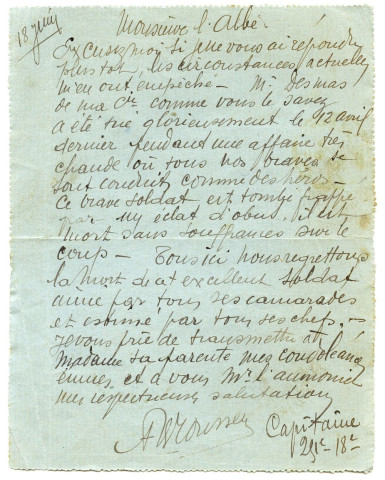 18 juin
Monsieur l'Abbé
Excusez moi si je ne vous ai répondu
plus tot, les circonstances actuelles
m'en ont empêché — Mr Desmas
de ma Cie comme vous le savez
a été tué glorieusement le 12 avril
dernier pendant une affaire très
chaude où tous nos braves se
sont conduits comme des héros —
Ce brave soldat est tombé frappé
par un éclat d'obus, il est
mort sans souffrances sur le
coup — Tous ici nous regrettons
la mort de cet excellent soldat
aimé par tous ses camarades
et estimé par tous ses chefs —
Je vous prie de transmettre à
Madame sa parente mes condoléances
émues, et à vous Mr l'aumonier
mes respectueuses salutations
Capitaine
18e